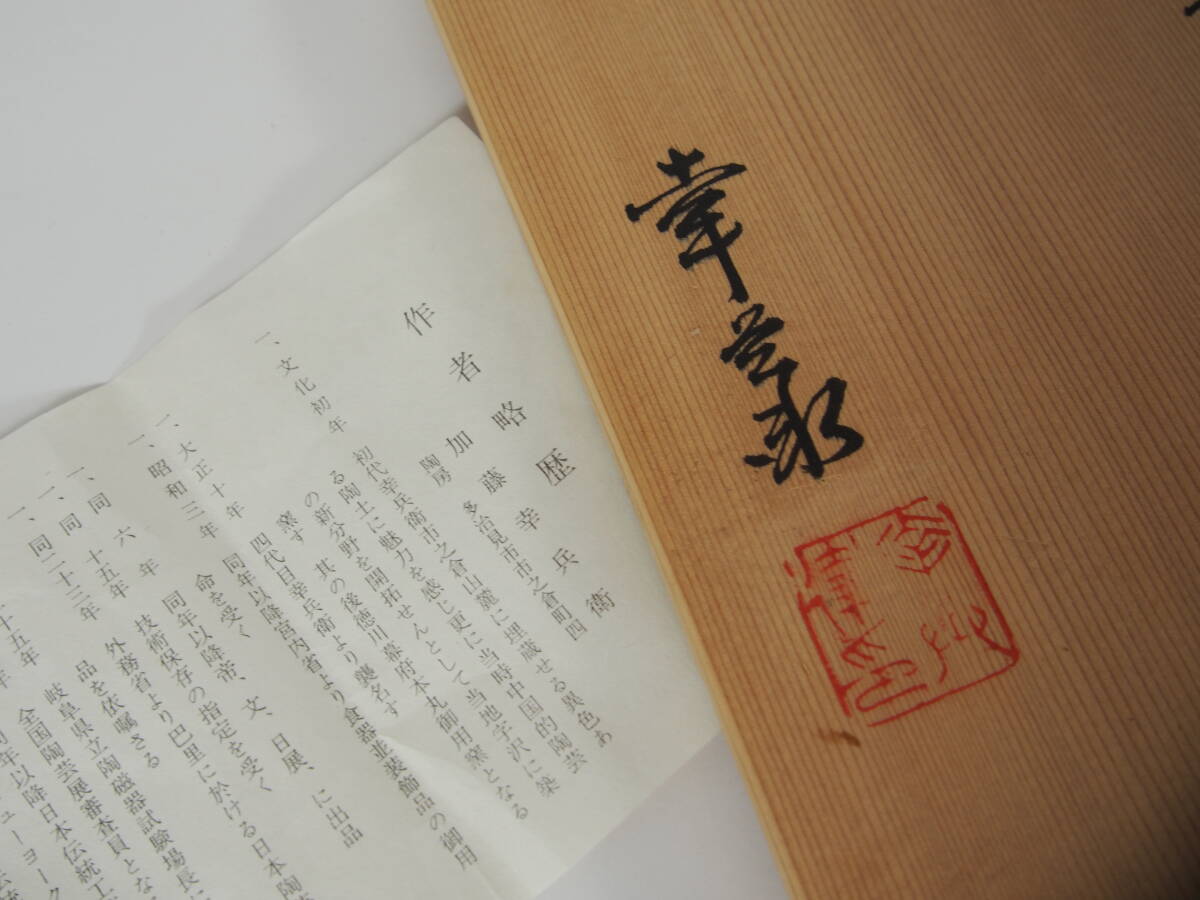 幸兵衛
作者略歴
加藤幸兵衛
陶房 多治見市市之倉町四
一、文化初年 初代幸兵衛市之倉山麓に埋蔵せる異色あ
る陶土に魅力を感じ更に当時中国的陶芸
の新分野を開拓せんとして当地字沢に築
窯す 其の後徳川幕府本丸御用窯となる
四代目幸兵衛より襲名す
一、大正十年 同年以降宮内省より食器並装飾品の御用
命を受く
一、昭和三年 同年以降帝、文、日展、に出品
一、同 六 年 技術保存の指定を受く
一、同 十五年 外務省より巴里に於ける日本陶
品を依嘱さる
一、同二十三年 岐阜県立陶磁器試験場長に
岐阜陶芸展審査員とな
十五年 全国
同年以降日本伝統工
ニューヨーク